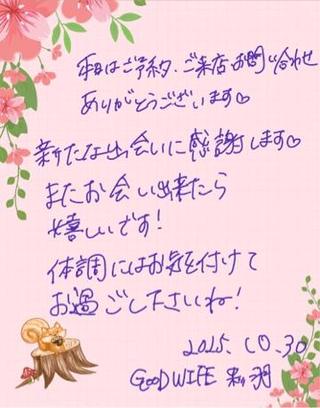 本日はご予約、ご来店お問い合わせ
ありがとうございます♡
新たな出会いに感謝します♡
またお会い出来たら
嬉しいです!
体調にはお気を付けて
お過ごし下さいね!
2025.10.30
GOOD WIFE